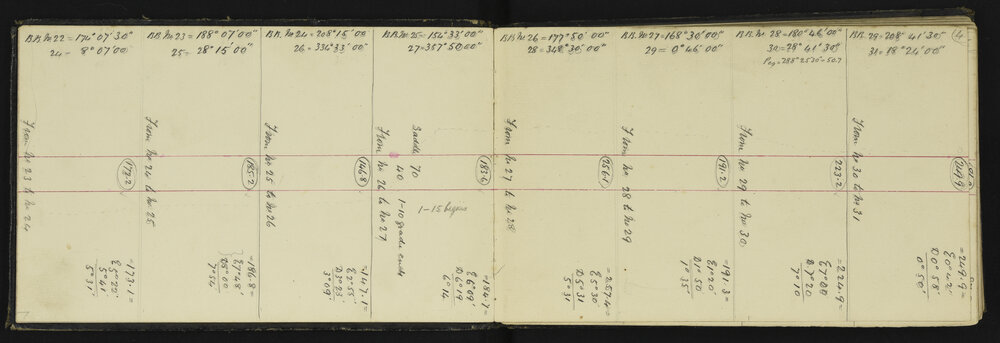 B.B. No 22 = 174° 07' 30"
24 - 8° 07' 00"
From No 23 to No 24
172.2
= 173.1 =
E 5° 22'
D 5° 41'
5° 31'
B.B. No 23 = 188° 07' 00"
25 = 28° 15' 00"
From No 24 to No 25
185.2
= 186.8 =
E 7° 48'
D 8° 00
7° 54
B.B. No 24 = 208° 15' 00
26 = 334° 33' 00"
From No 25 to No 26
146.8
= 147.1 =
E 2° 55'
D 3° 23'
3° 09'
B.B. No 25 = 154° 33' 00"
27 = 357° 50' 00"
From No 26 to No 27
Saddl 70
40 1-10 grade ends
1-15 begins
183.6
= 184.7 =
E 6° 09'
D 6° 19
6° 14
B.B. No 26 = 177° 50' 00"
28 = 348° 30' 00"
From No 27 to No 28
256.1
= 257.4 =
E 5° 30'
D 5° 31
5° 31
B.B. No 27 = 168° 30' 00"
29 = 0° 46' 00"
From No 28 to No 29
191.2
= 191.3 =
E 1° 20'
D 1° 50'
1° 35'
B.B. No 28 = 180° 46' 00"
30 = 28° 41' 30"
Peg = 288° 25' 30" = 50.7
From No 29 to No 30
223.2
= 224.9 =
E 7° 00
D 7° 20
7° 10
B.B. 29 = 208° 41' 30"
31 = 18° 24' 00"
4
From No 30 to No 31
249.9
= 249.9 =
E 0° 42'
D 0° 58'
0° 50'